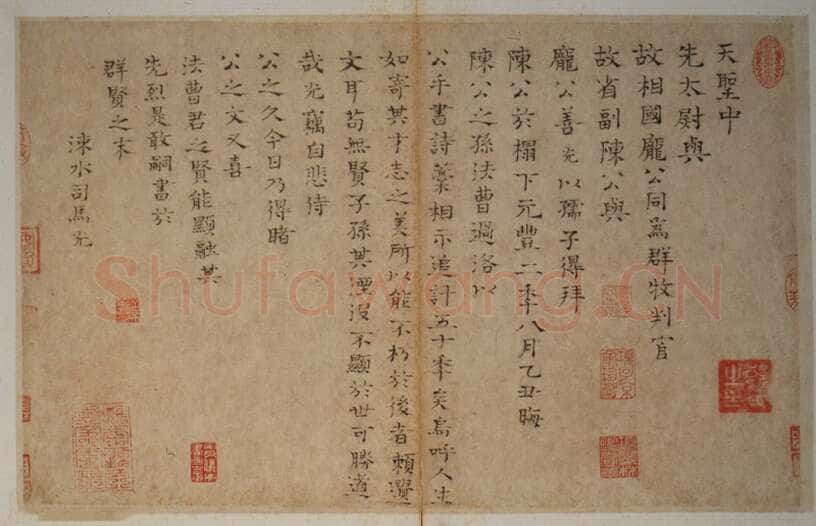 天聖中
先太尉與
故相國龐公同爲群牧判官
故省副陳公與
龐公善光以孺子得拜
陳公於榻下元豐二秊八月乙丑晦
陳公之孫法曹過洛以
公手書詩藁相示追計五十秊矣烏呼人生
如寄其才志之美所以能不朽於後者賴遺
文耳苟無賢子孫其湮沒不顯於世可勝道
哉光竊自悲侍
公之久今日乃得睹
公之文又喜
法曹君之賢能顯融其
先烈是敢嗣書於
群賢之末
涑水司馬光
Shufawang.CN